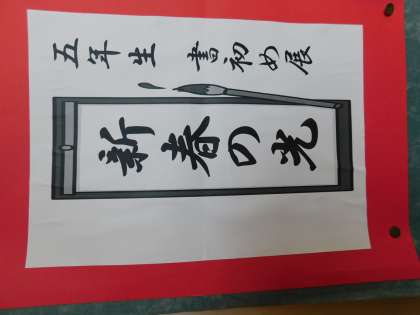 五年生 書初め展
新春の光